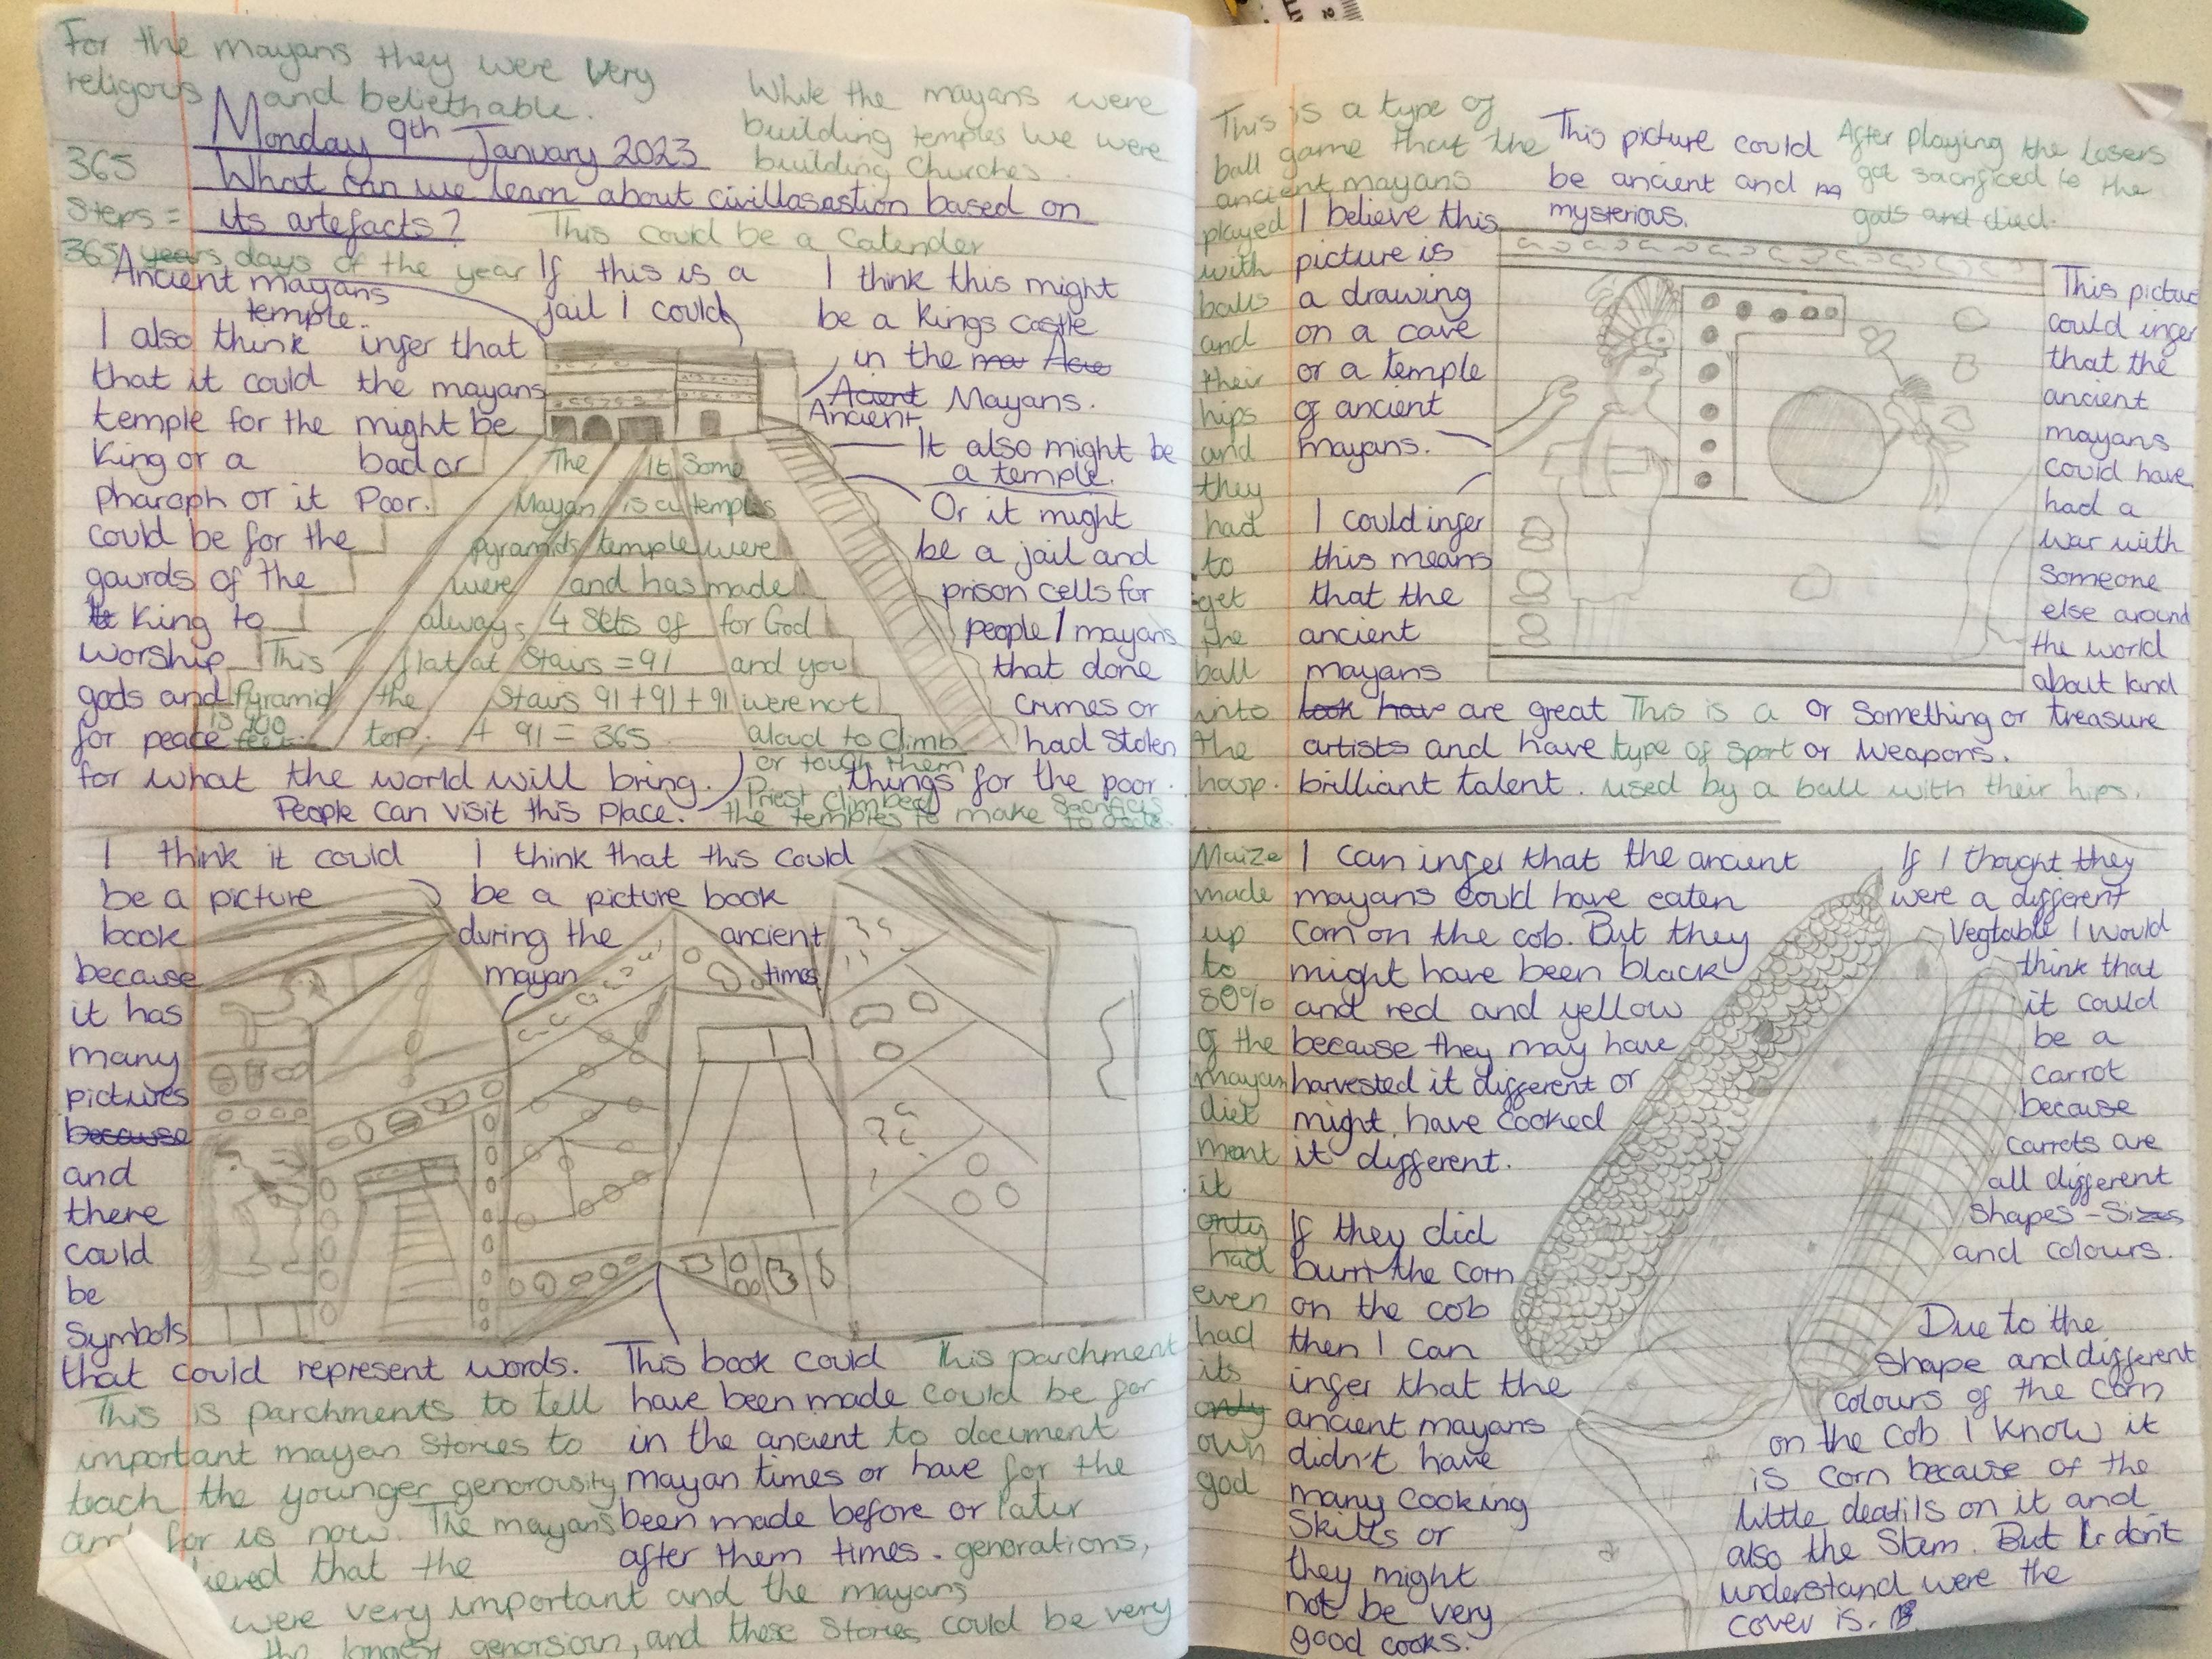 For the mayans they were very
religous and beliethable.
While the mayans were
building temples we were
building churches.
Monday 9th January 2023
What can we learn about civillasastion based on
its artefacts?
365
Steps =
365 years days of the year
This could be a Calender
Ancient mayans
temple.
I also think
that it could
temple for the
King or a
Pharaph or it
could be for the
gaurds of the
King to
worship
gods and
for peace
for what the world will bring.
People can visit this place.
If this is a
jail I could
infer that
the mayans
might be
bad or
Poor.
I think this might
be a Kings castle
in the Acie
Acient Mayans.
Ancient
It also might be
a temple.
Or it might
be a jail and
prison cells for
people / mayans
that done
crimes or
had stolen
things for the poor.
This
Pyramid
is 900
feet
The
Mayan
pyramids
were
always
flat at
the
top,
It
is a
temple
and has
4 sets of
stairs = 91
stairs 91 + 91 + 91
+ 91 = 365
Some
temples
were
made
for God
and you
were not
aloud to climb
or touch them
Priest climbed
the temples to make sacrifices
to gods.
I think it could
be a picture
book
because
it has
many
pictures
because
and
there
could
be
Symbols
that could represent words.
I think that this could
be a picture book
during the ancient
mayan times
This is parchments to tell
important mayan stories to
teach the younger generousity
and for us now. The mayans
that the
were very important and the mayans
the longest generosioun, and these stories could be very
This book could
have been made
in the ancient
mayan times or have
been made before or
after them times.
This parchment
could be for
to document
for the
later
generations,
This is a type of
ball game that the
ancient mayans
played
with
balls
and
their
hips
and
they
had
to
get
the
ball
into
the
hoop.
This picture could
be ancient and
mysterious.
After playing the losers
got sacrificed to the
gods and died.
I believe this
picture is
a drawing
on a cave
or a temple
of ancient
mayans.
I could infer
this means
that the
ancient
mayans
look have are great
artists and have
brilliant talent.
This is a
type of sport
used by a ball with their hips.
This pictue
could infer
that the
ancient
mayans
could have
had a
war with
Someone
else around
the world
about land
or something or treasure
or weapons.
Maize
made
up
to
80%
of the
mayan
diet
meant
it
only
had
even
had
its
only
own
god
I can infer that the ancient
mayans could have eaten
corn on the cob. But they
might have been black
and red and yellow
because they may have
harvested it different or
might have cooked
it different.
If they did
burn the corn
on the cob
then I can
infer that the
ancient mayans
didn't have
many cooking
Skills or
they might
not be very
good cooks.
If I thought they
were a different
Vegtable I would
think that
it could
be a
carrot
because
carrots are
all different
shapes - Sizes
and colours.
Due to the
shape and different
colours of the corn
on the cob I know it
is corn because of the
little deatils on it and
also the stem. But I don't
understand were the
cover is.